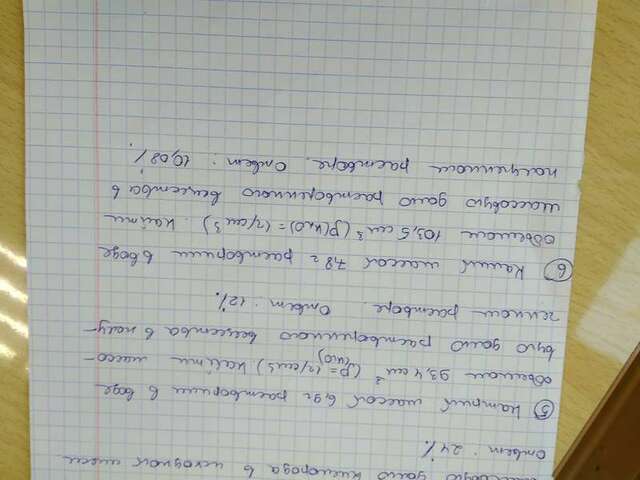 массовую долю кислорода в исходной смеси
Ответ: 24%.
⑤ Натрий массой 6,9г растворили в воде
объемом 93,4 см³ (ρ=1г/см³) найти массо-
(H₂O)
вую долю растворенного вещества в полу-
ченном растворе. Ответ: 12%.
⑥ Калий массой 7,8г растворили в воде
объемом 103,5 см³ (ρ(H₂O)=1г/см³). Найти
массовую долю растворенного вещества в
полученном растворе. Ответ: 10,08%.